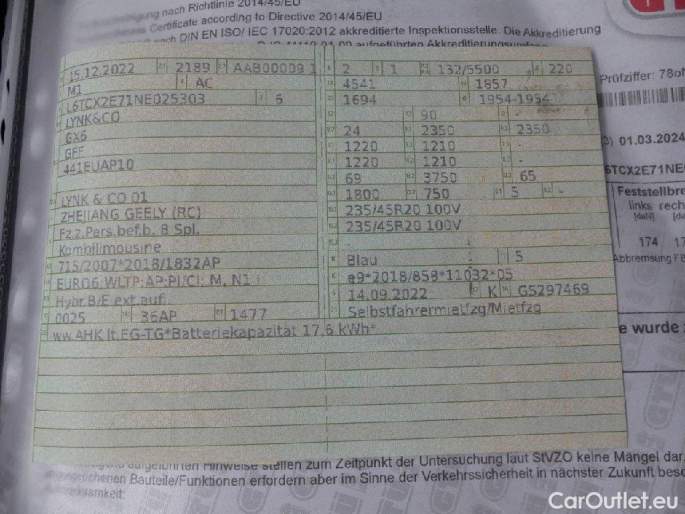 nach Richtlinie 2014/45/EU
Certificate according to Directive 2014/45/EU
nach DIN EN ISO/ IEC 17020:2012 akkreditierte Inspektionsstelle. Die Akkreditierung
15.12.2022 2189 AAB00009 1
M1 AC
L6TCX2E71NE025303 6
LYNK&CO
GX6
GFF
441EUAP10
LYNK & CO 01
ZHEJIANG GEELY (RC)
Fz.z.Pers.bef.b. 8 Spl.
Kombilimousine
715/2007*2018/1832AP
EURO6;WLTP;AP;PI/CI; M, N1 I
Hybr.B/E ext.aufl.
0025 36AP 1477
2 1 132/5500 220
4541 1857
1694 1954-1954
- 90 -
24 2350 2350
1220 1210 -
1220 1210 -
69 3750 65
1800 750 5 -
235/45R20 100V
235/45R20 100V
-
Blau 5
e9*2018/858*11032*05
14.09.2022 K G5297469
Selbstfahrermietfzg/Mietfzg
ww.AHK lt.EG-TG*Batteriekapazität 17,6 kWh*
Prüfziffer:
01.03.2024
6TCX2E71NE
Feststellbre
links rech
[daN] [daN]
174 17
Abbremsung
e wurde
aufgeführten Hinweise stellen zum Zeitpunkt der Untersuchung laut StVZO keine Mängel dar
Bauteile/Funktionen erfordern aber im Sinne der Verkehrssicherheit in nächster Zukunft
CarOutlet.eu